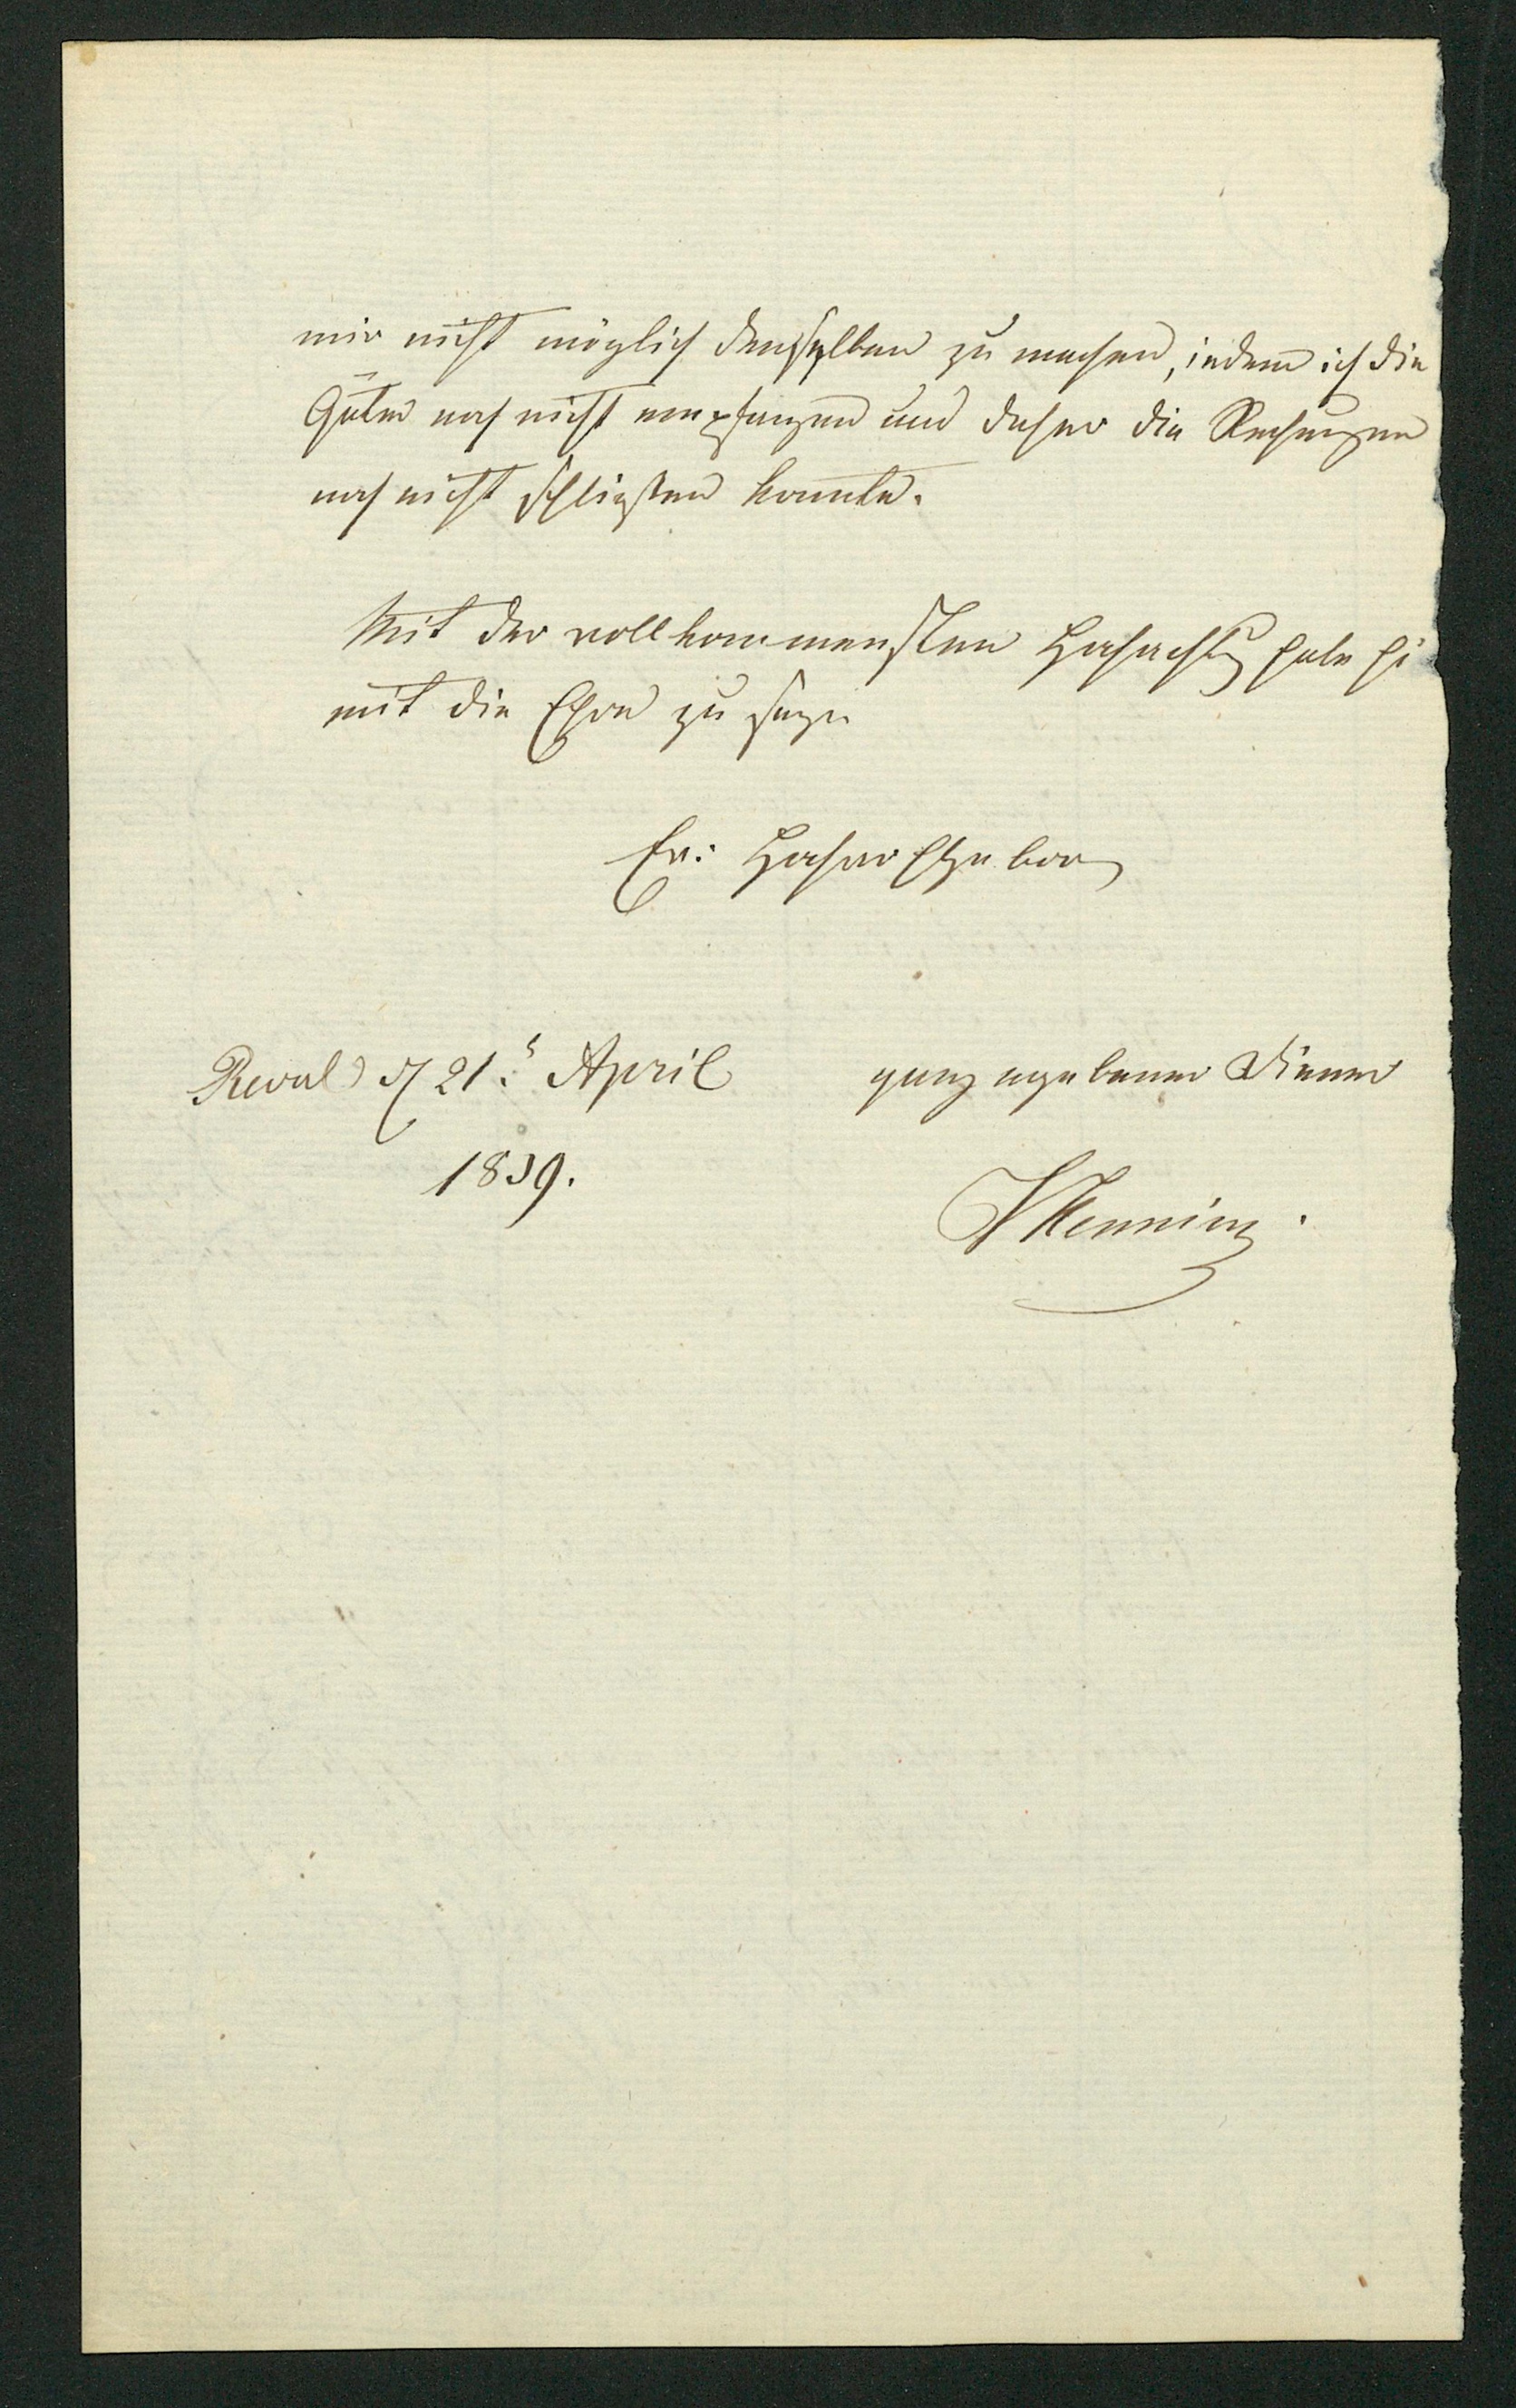 mir nicht möglich denselben zu machen, indem ich die
Güter noch nicht empfangen und daher die Rechnungen
noch nicht schließen konnte.
Mit der vollkommensten Hochachtung habe hi
mit die Ehre zu seyn
Ew: Hochwohlgebor
Reval d 21. April
ganz ergebener Diener
1839.
Henning.